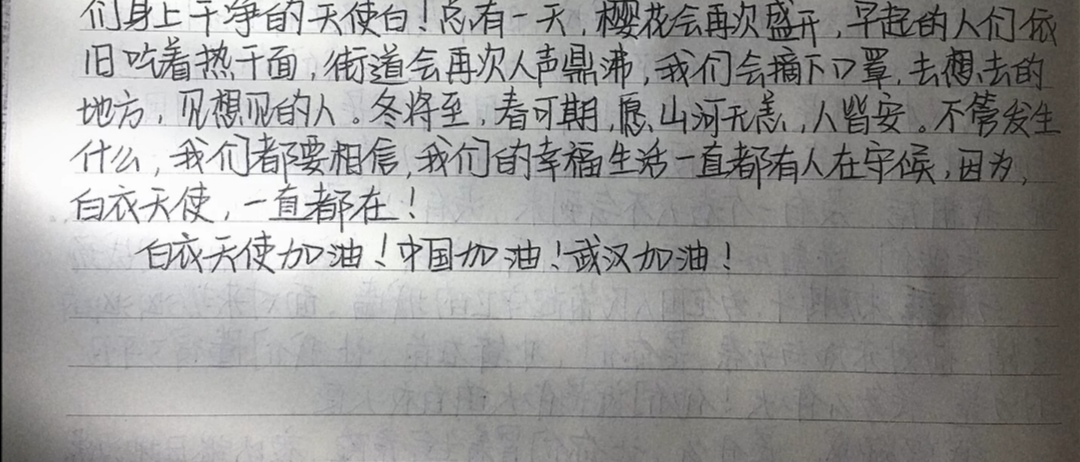 们身上干净的天使白！总有一天，樱花会再次盛开，早起的人们依
旧吃着热干面，街道会再次人声鼎沸，我们会摘下口罩，去想去的
地方，见想见的人。冬将至，春可期，愿山河无恙，人皆安。不管发生
什么，我们都要相信，我们的幸福生活一直都有人在守候，因为，
白衣天使，一直都在！
白衣天使加油！中国加油！武汉加油！